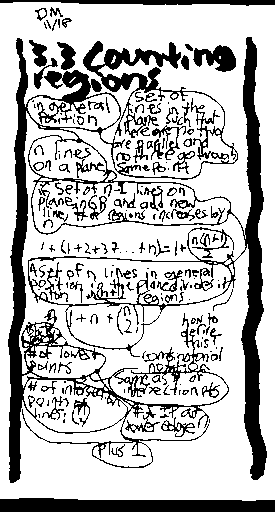 DM
11/18
3.3 Counting
regions
in general
position
Set of
lines in the
plane such that
there are no two
are parallel and
no three go through
same point
n lines
on a plane
Set of n-1 lines on
plane in GP and add new
line, # of regions increases by n
1+(1+2+3+...+n)=1+ n(n+1)/2
A set of n lines in general
position in the plane divides it
into regions
1+n+(n 2)
how to
derive
this?
combinatorial
# of lowest
points
same as # of
intersection pts
# of intersection
points of
lines:
# of IP as
lower edge
Plus 1